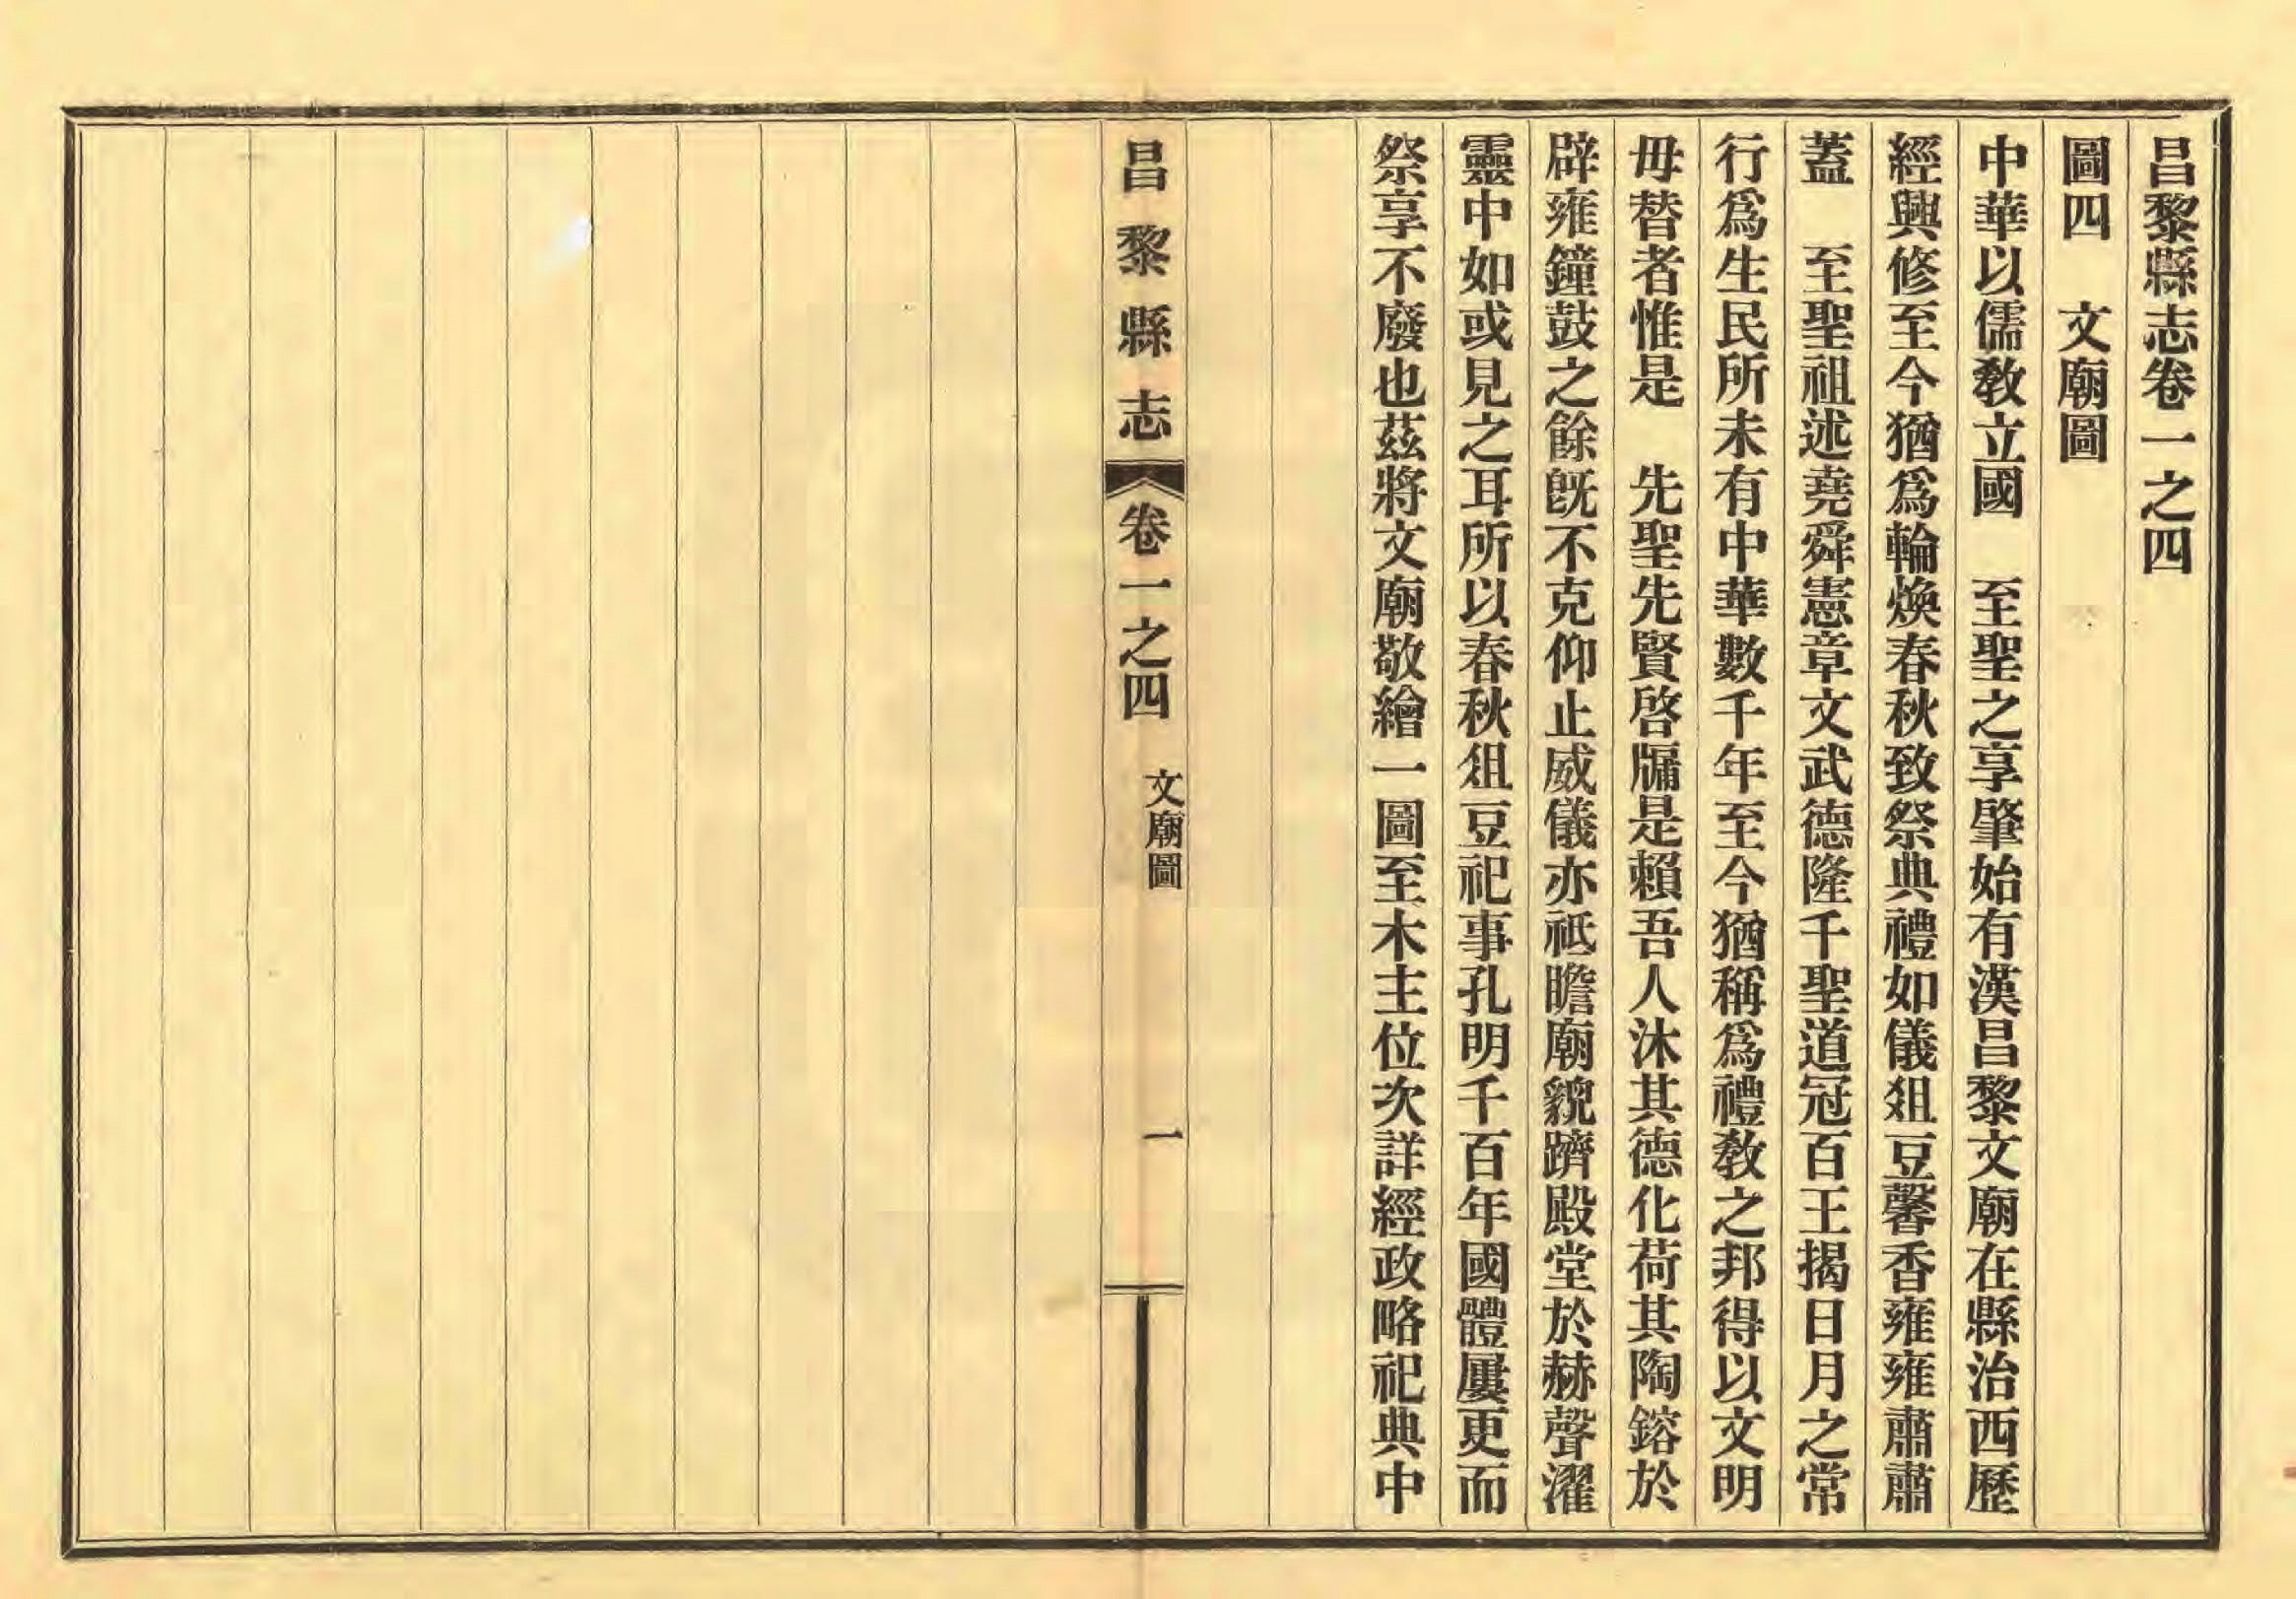 昌黎縣志卷一之四
圖四　文廟圖
中華以儒敎立國　至聖之享肇始有漢昌黎文廟在縣治西歷
經興修至今猶爲輪煥春秋致祭典禮如儀俎豆馨香雍雍肅肅
蓋　至聖祖述堯舜憲章文武德隆千聖道冠百王揭日月之常
行爲生民所未有中華數千年至今猶稱爲禮敎之邦得以文明
毋替者惟是　先聖先賢啓牖是賴吾人沐其德化荷其陶鎔於
辟雍鐘鼓之餘旣不克仰止威儀亦祇瞻廟貌躋殿堂於赫聲濯
靈中如或見之耳所以春秋俎豆祀事孔明千百年國體屢更而
祭享不廢也茲將文廟敬繪一圖至木主位次詳經政略祀典中
昌黎縣志　卷一之四　文廟圖　一